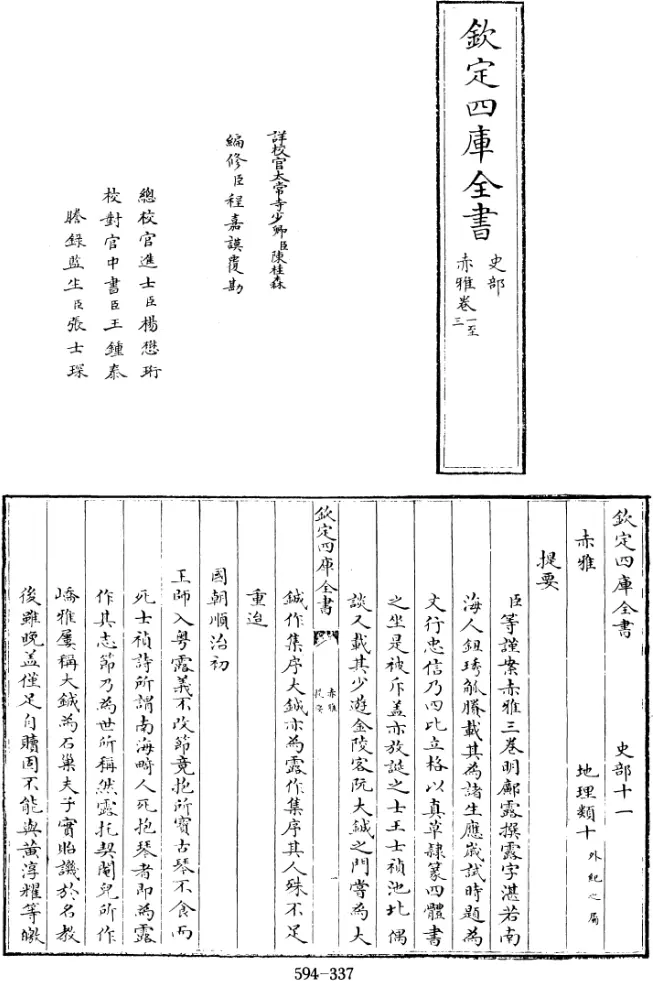 欽定四庫全書
史部
赤雅卷一至三
詳校官太常寺少卿臣陳桂森
編修臣程嘉謨覆勘
總校官進士臣楊懋珩
校對官中書臣王鍾泰
謄錄監生臣張士琛
欽定四庫全書 史部十一
赤雅 地理類十外紀之屬
提要
臣等謹案赤雅三卷明鄺露撰露字湛若南
海人鈕琇觚賸載其為諸生應嵗試時題為
文行忠信乃四比立格以真草𨽻篆四體書
之坐是被斥盖亦放誕之士王士禎池北偶
談又載其少遊金陵客阮大鋮之門嘗為大
欽定四庫全書 赤雅提要
鋮作集序大鋮亦為露作集序其人殊不足
重迨
國朝順治初
王師入粤露義不改節竟抱所寳古琴不食而
死士禎詩所謂南海畸人死抱琴者即為露
作其志節乃為世所稱然露托契閹兒所作
嶠雅屢稱大鋮為石巢夫子實貽譏於名教
後雖晚盖僅足自贖固不能與黄淳耀等皦
594-337